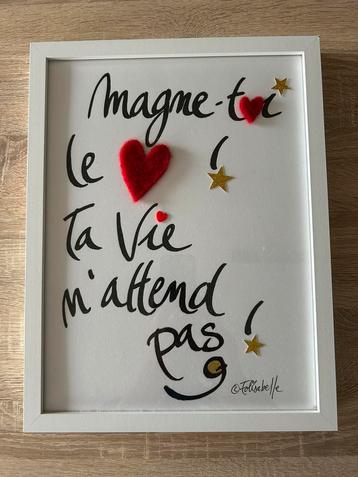 Magne-toi
le !
Ta Vie
n'attend
pas !
© Folisabelle